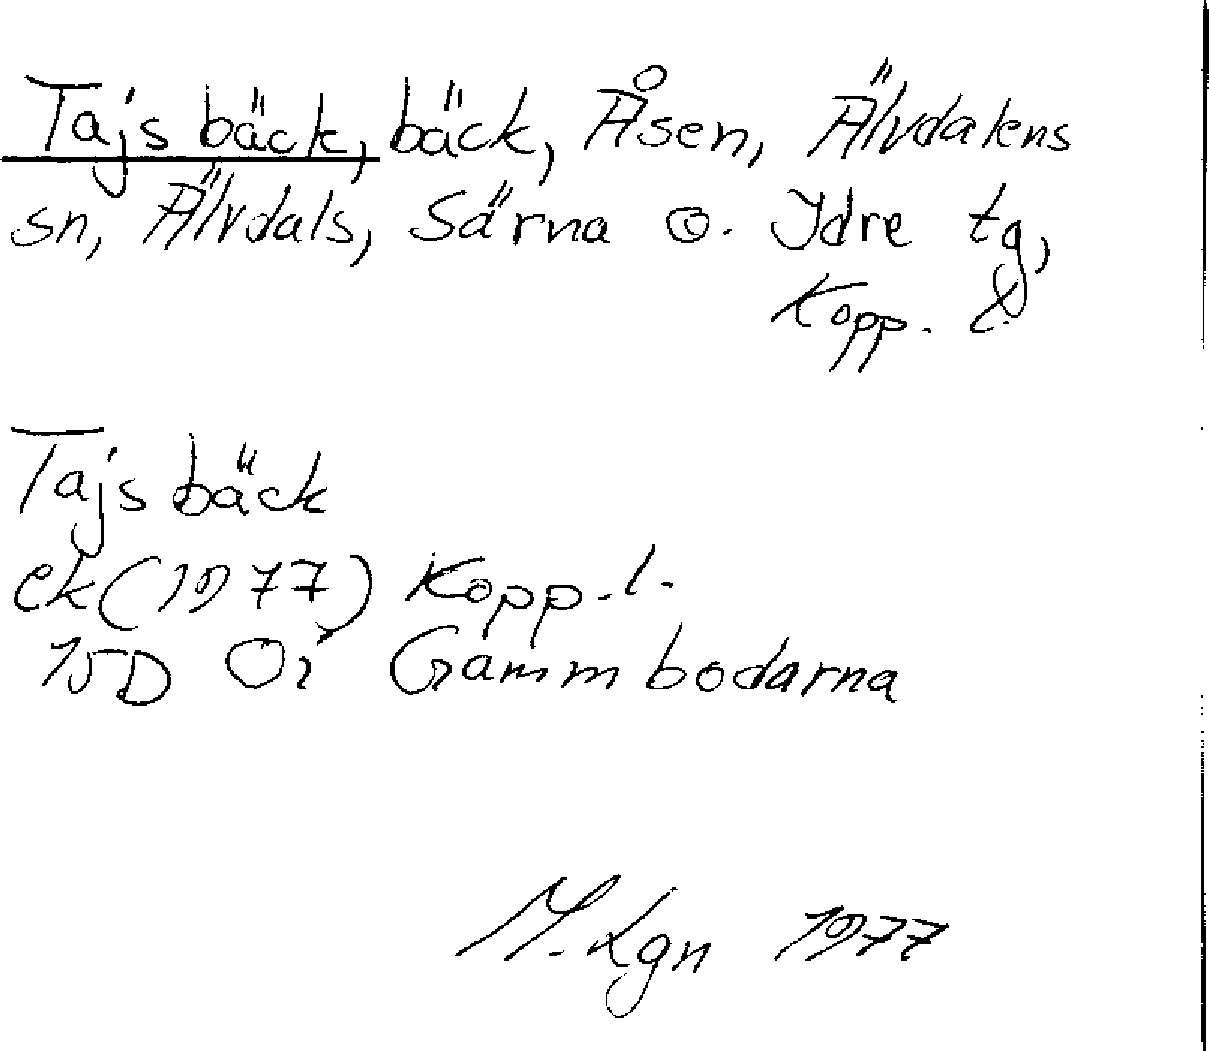 Tajsbäck, bäck, Åsen, Älvdalens
sn, Älvdals, Särna o. Idre tg,
Kopp. l.
Tajsbäck
ek (1977) Kopp. l.
15D Öi Gammbodarna
M. Lgn 1977